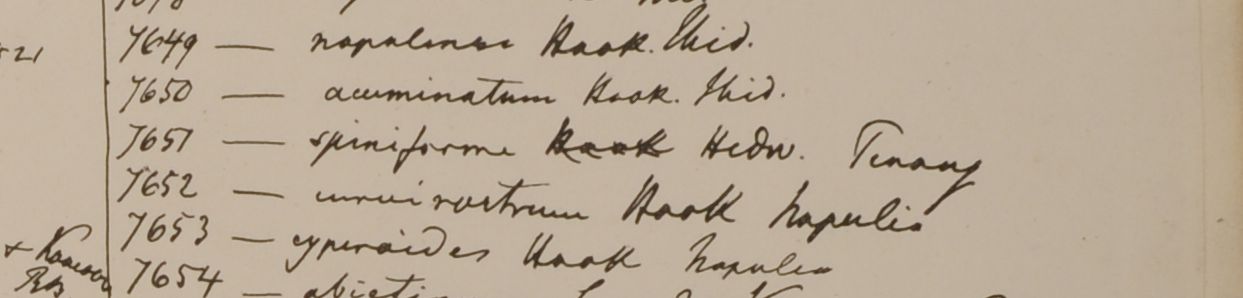 7649 — napalense Hook. Ibid.
7650 — acuminatum Hook. Ibid.
7651 — spiniforme Hook Hedw. Penang
7652 — curvirostrum Hook Napalia
7653 — cyperoides Hook Napalia
7654 —